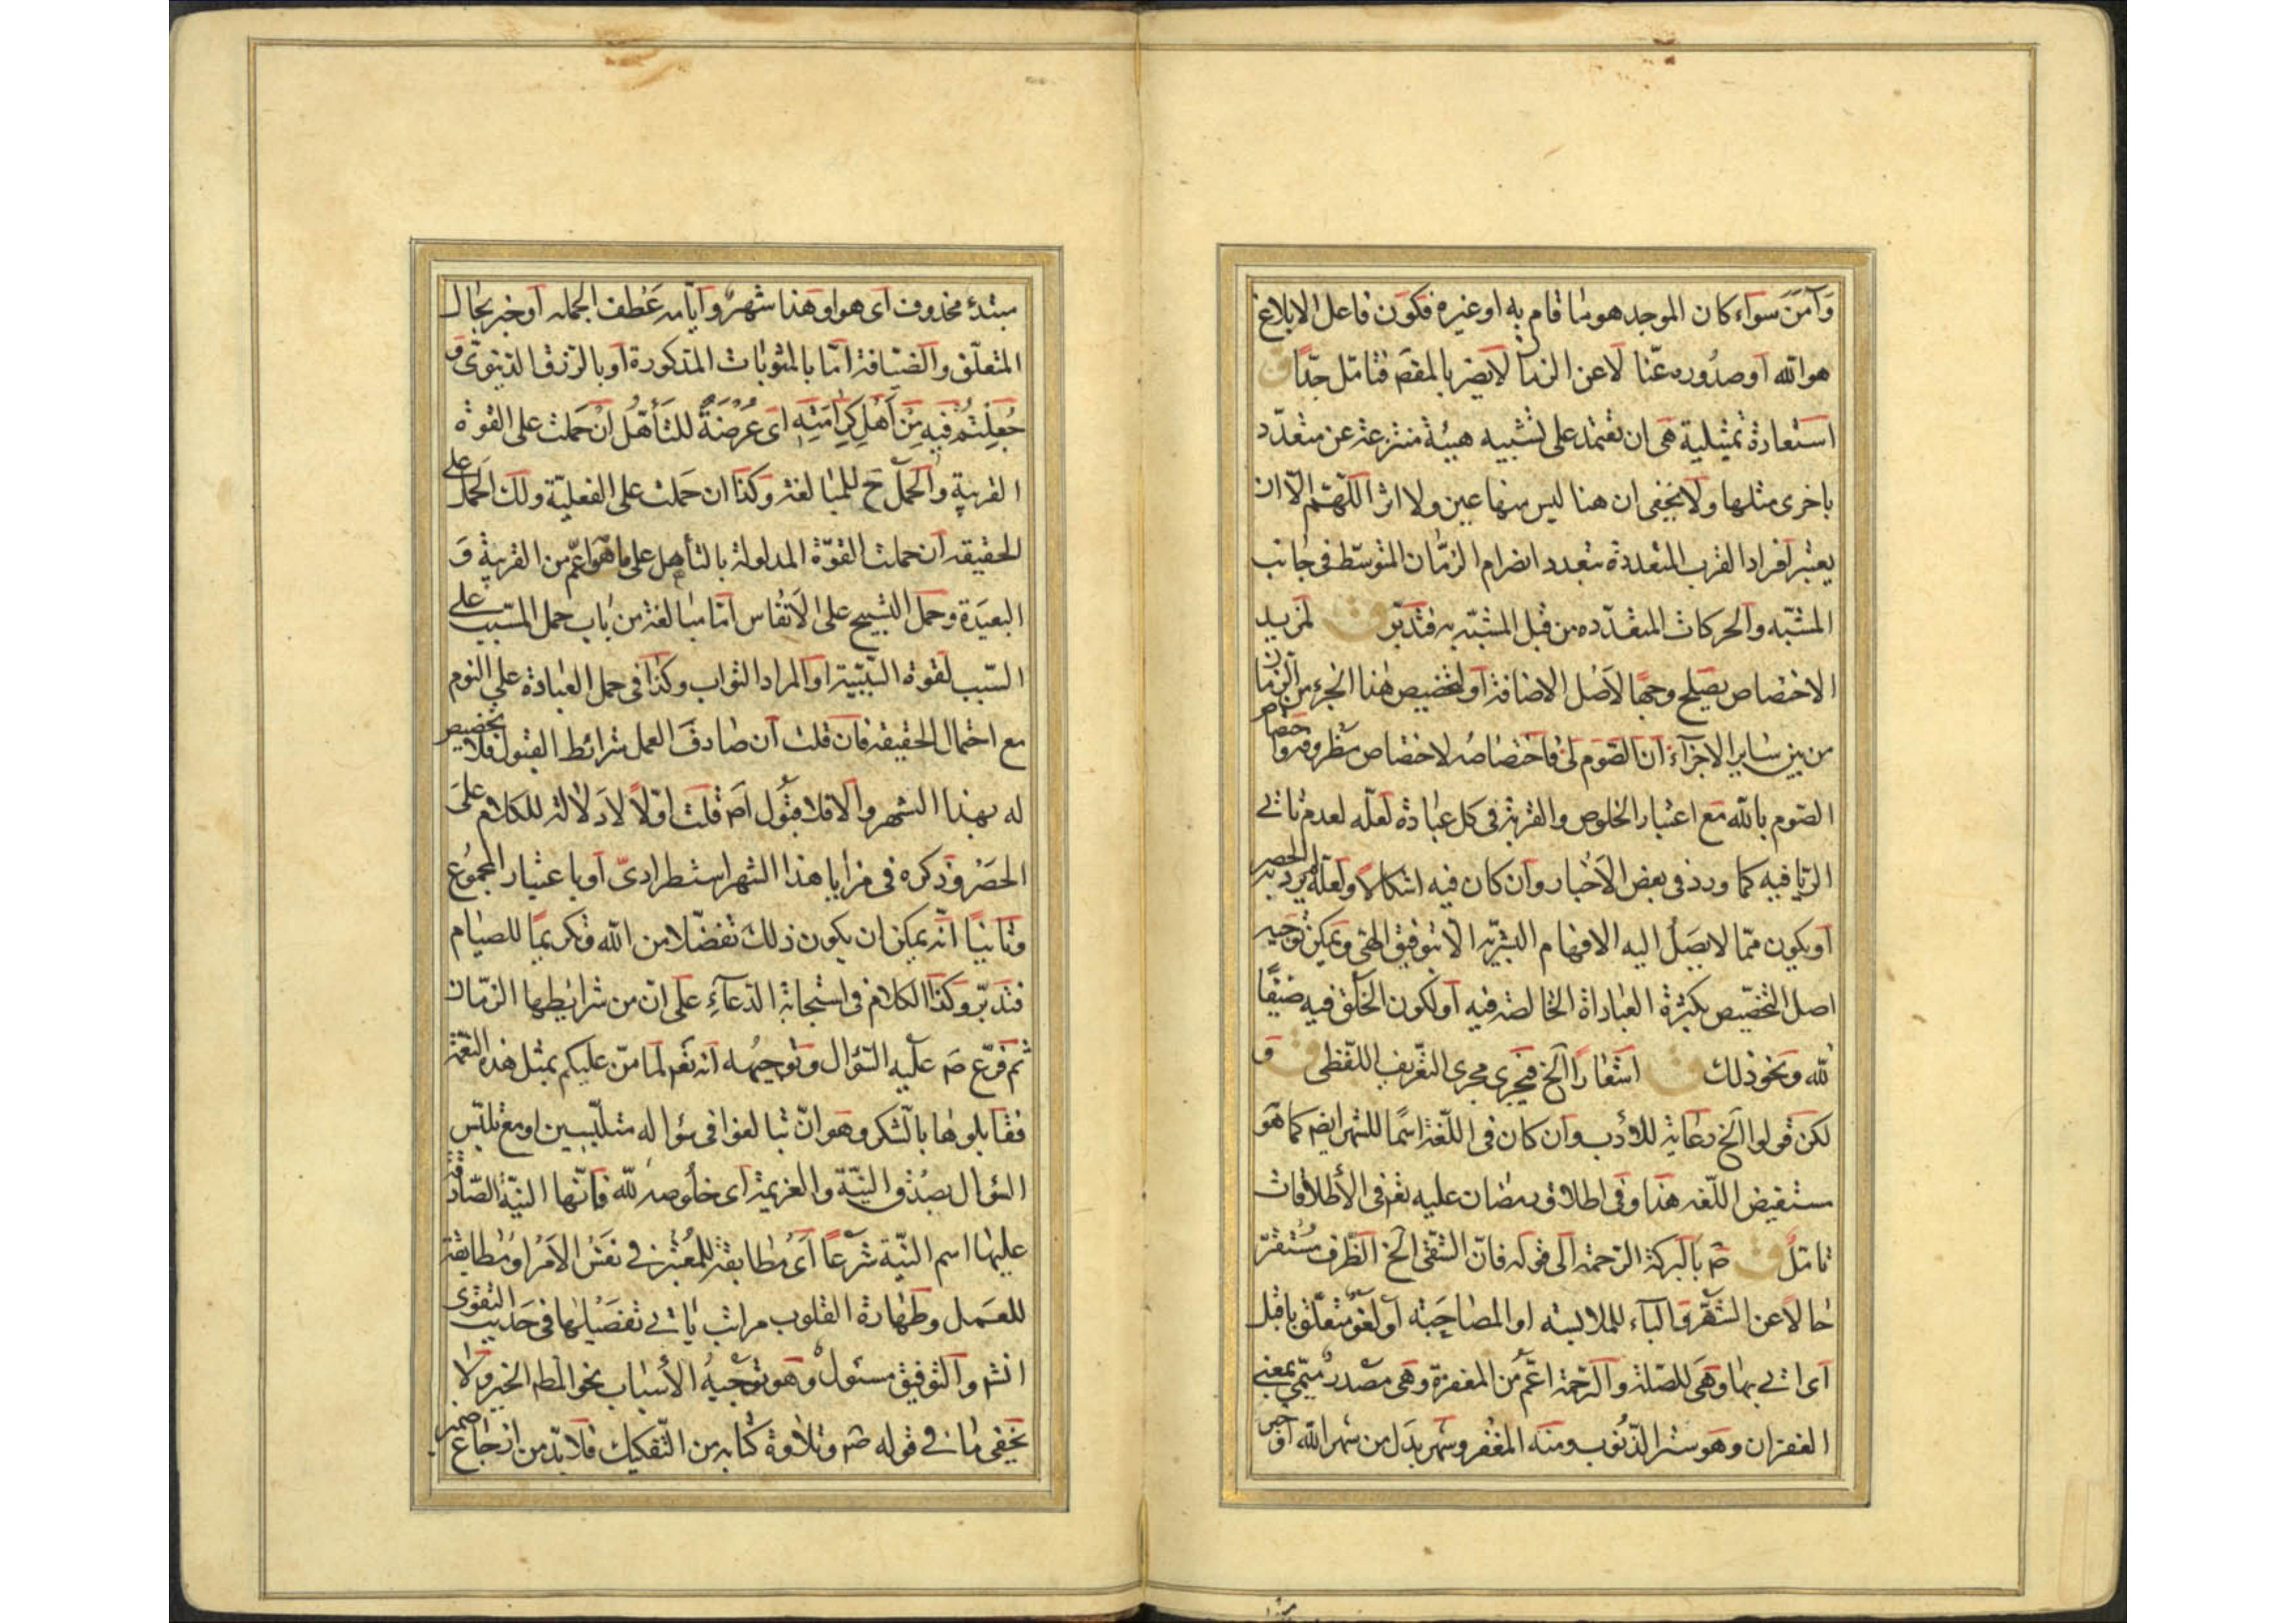 وَآمَنَ سواء كان الموجد هو ما قام به او غيره فكون فاعل الابلاغ
هو الله او صدوره عنّا لا عن الزمان لا يضر بالمقصم فتامّل جدّاً ق
استعارة تمثيلية هى ان تعتمد على تشبيه هيئة منتزعة عن متعدّد
باخرى مثلها ولا يخفى ان هنا ليس منها عين ولا اثر اللّهمّ الّا ان
يعتبر افراد القرب المتعددة بتعدد انصرام الزمّان المتوسّط فى جانب
المشبّه والحركات المتعدّده من قبل المشبّه به فتدبّر ق لمزيد
الاختصاص يصلح وجهًا لاصل الاضافة او لتخصيص هذا الجزء من الزمان
من بين ساير الاجزآء انّ الصّوم لى فاختصاصه لاختصاص مظروفه واختصاص
الصّوم بالله مع اعتبار الخلوص والقربة فى كل عبادة لعلّه لعدم تاتى
الريا فيه كما ورد فى بعض الاخبار وان كان فيه اشكالاً ولعلّه لم يرد به الحصر
او يكون ممّا لا يصل اليه الافهام البشريّه الّا بتوفيق الهى ويمكن توجيه
اصل التخصّيص بكثرة العباداة الخالصة فيه او لكون الخلق فيه ضيفًا
لله ونحو ذلك ق اشعاراً الخ فيجرى مجرى التعريف اللفظى ق و
لكن قولوا الخ رعاية للأدب وان كان فى اللغة اسمًا للشهر ايضم كما هو
مستفيض اللّغه هذا وفى اطلاق رمضان عليه تعم فى الأطلاقات
تامّل ق صم بالبركة الرحمة الى قوله فانّ الشقى الخ الظرف مستقرّ
حالاً عن الشّهر والباء للملابسة او المصاحبة او لغو متعلّق باقبل
اى اتى بها وهى للصّلة والرّحمة اعمّ من المغفرة وهى مصدر ميّمى بمعنى
الغفران وهو ستر الذّنوب ومنه المغفر وشهر بدل من شهر الله او خبر
مبتدء محذوف اى هو او هذا شهر وايّامه عطف الجمله او خبر بحال
المتعلّق والضّيافة امّا بالمثوبات المذكورة او بالرّزق الدنيوىّ و
جُعِلْتُمْ فِيهِ مِنْ اَهْلِ كَرامَتِهِ اى عُرْضَةً للتأهّل ان حملت على القوة
القريبة والحمل ح للمبالغة وكذا ان حملت على الفعليّة ولك الحمل على
الحقيقه ان حملت القوّة المدلولة بالتأهل على ما هو اعمّ من القريبة و
البعيدة وحمل التسبيح على الانفاس امّا مبالغة من باب حمل المسّبب على
السّبب لقوة السّببيّة او المراد الثواب وكذا فى حمل العبادة على النوم
مع احتمال الحقيقه فان قلت ان صادف العمل شرائط القبول فلا تخصيص
له بهذا الشهر والّا فلا قبول اصم قلت اوّلاً لا دلالة للكلام على
الحصر وذكره فى مزايا هذا الشهر استطرادىّ او باعتبار المجموع
وثانياً انّه يمكن ان يكون ذلك تفضّلا من الله وتكريمًا للصيام
فتدبّر وكذا الكلام فى استجابة الدّعآءِ على انّ من شرايطها الزمّان
ثم فرّع صم عليه السّؤال وتوجيهه انّه تعم لما منّ عليكم بمثل هذه النعمة
فقابلوها بالشكر وهو انّ تبالغوا فى سؤاله متلبّسين او مع تلبّس
السّؤال بصدق النيّة والعزيمة اى خلوصه لله فانّها النيّة الصّادقة
عليها اسم النيّة شرعاً اى مطابقة للمُعْتبر فى نفس الامر او مطابقة
للعمل وطهارة القلوب مراتب ياتى تفصيلها فى حديث التقوى
انشم والتوفيق مسئول وهو توجيه الأسباب نحو المطم الخير ولا
يخفى ما فى قوله صم وتلاوة كتابه من التّفكيك فلا بدّ من ارجاع ضمير